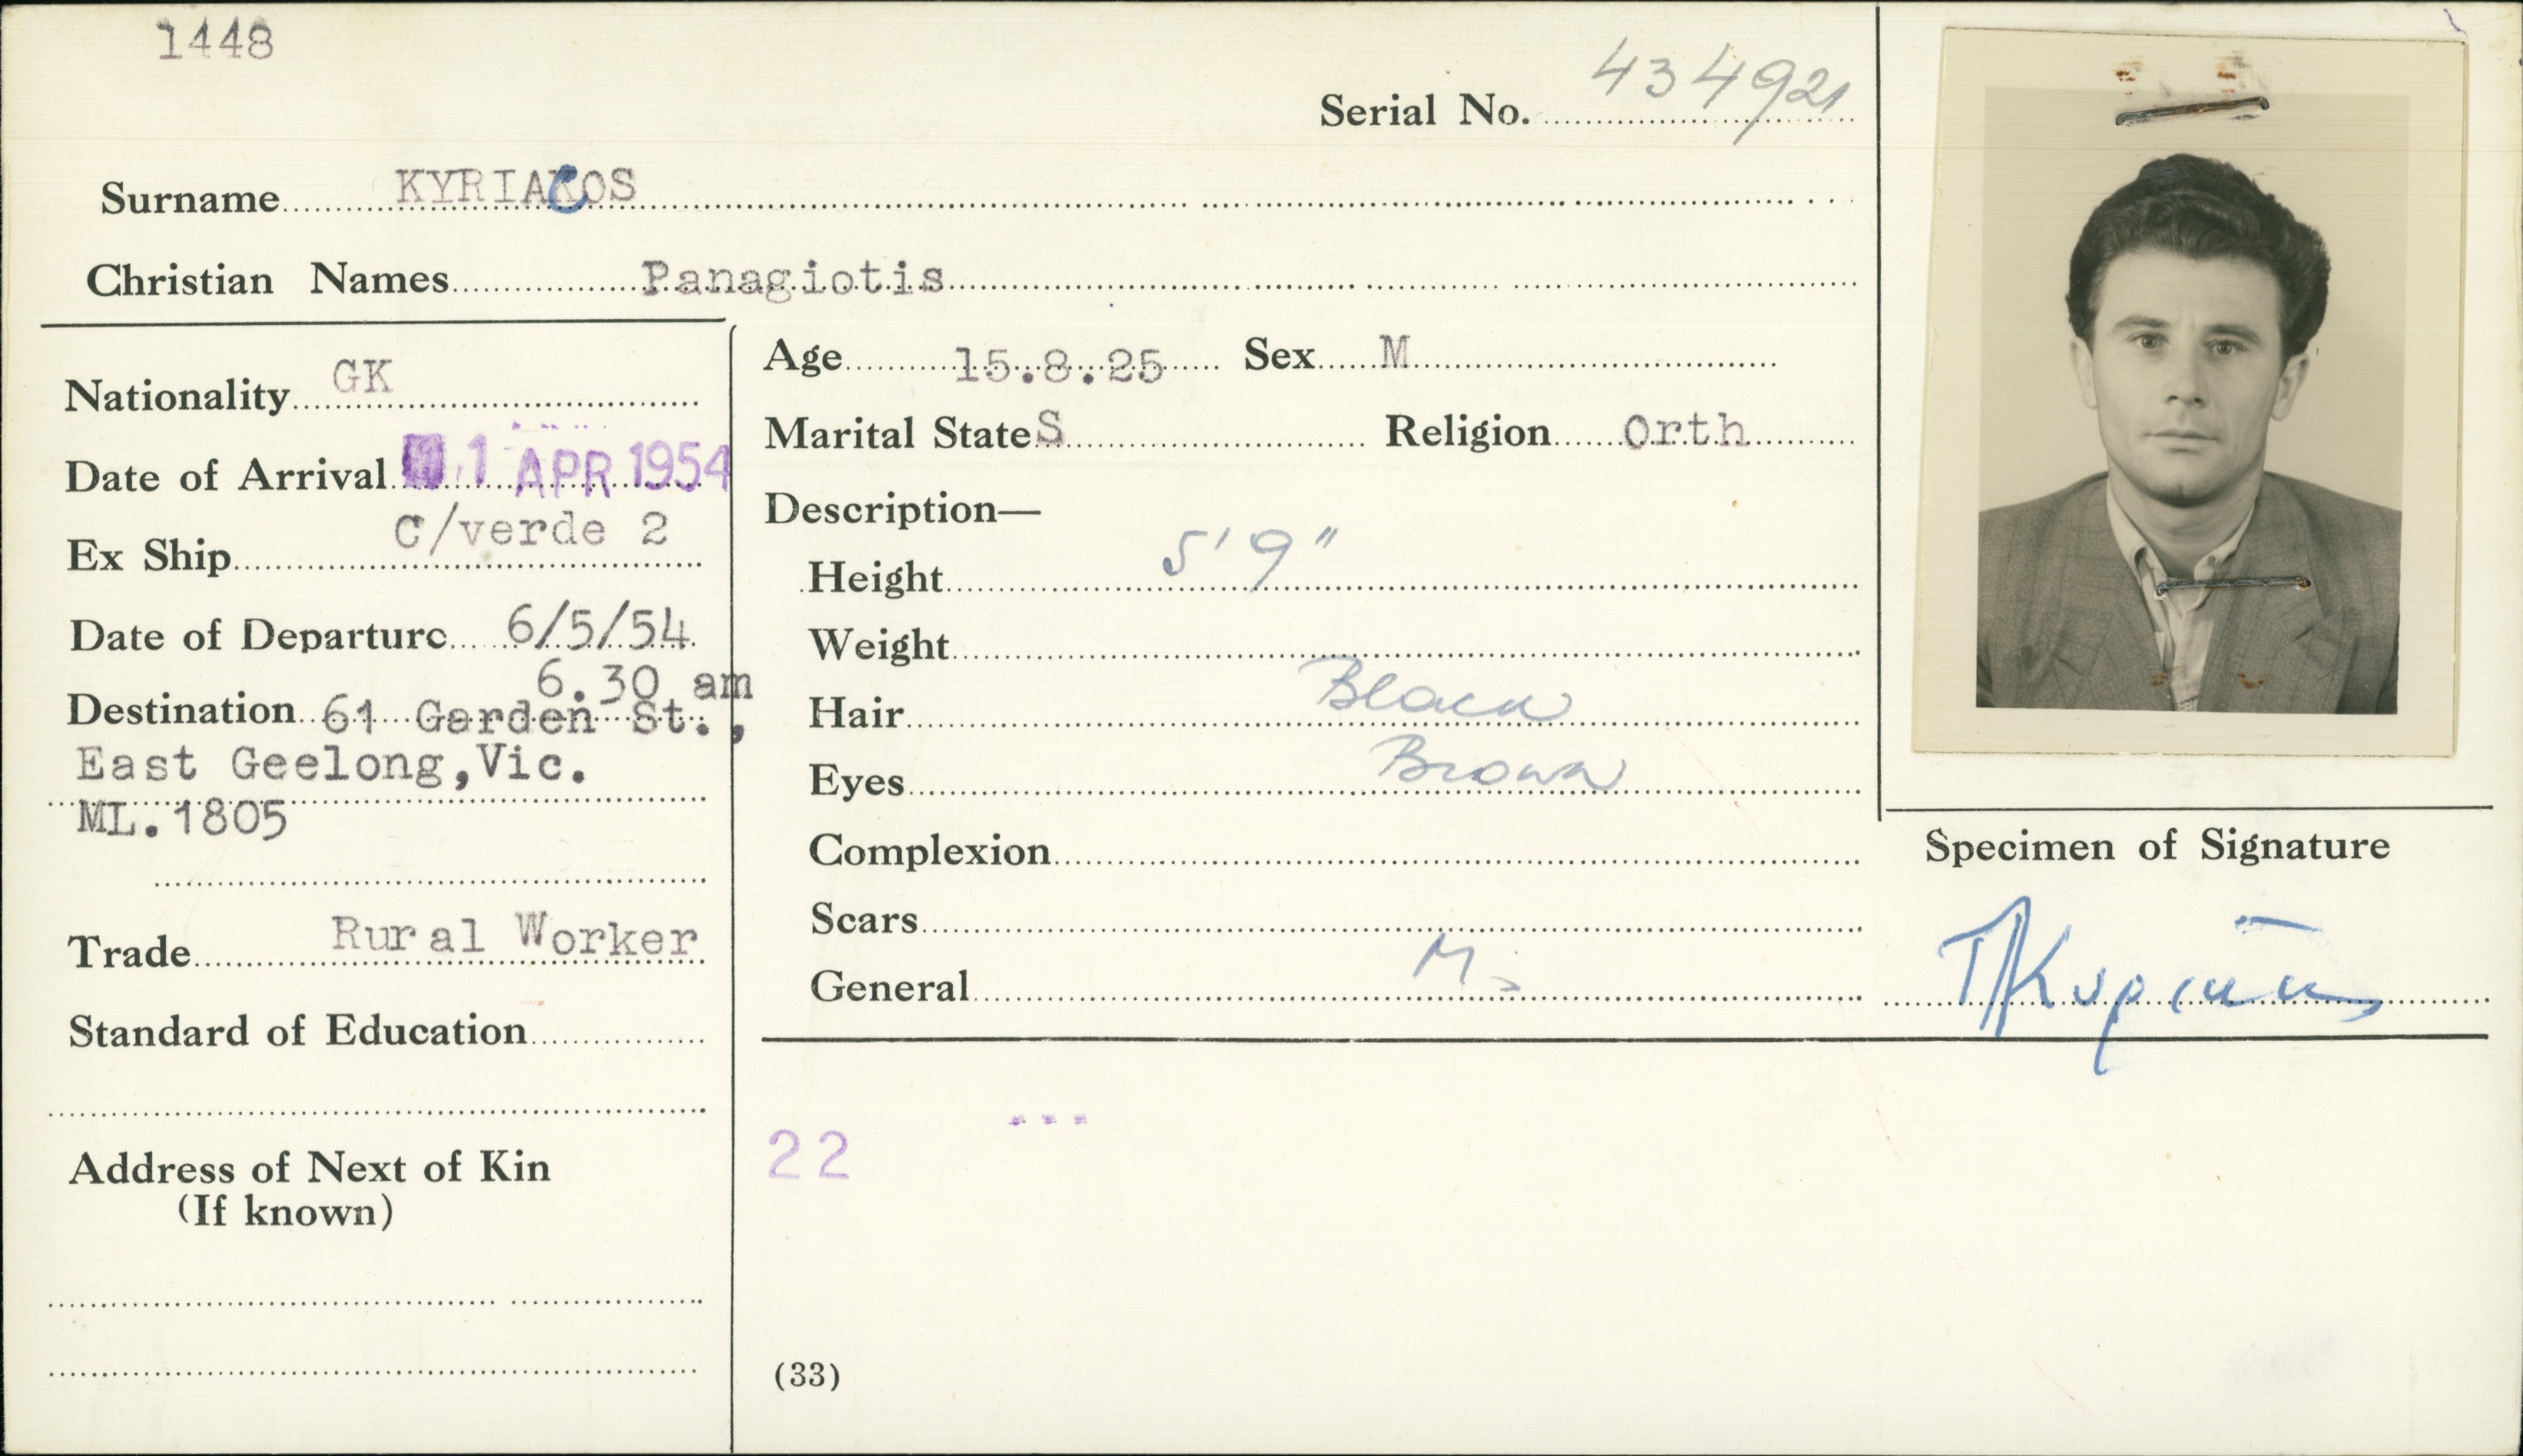 1448
Serial No. 434921
Surname KYRIACOS
Christian Names Panagiotis
Nationality GK
Date of Arrival 1 APR 1954
Ex Ship C/verde 2
Date of Departure 6/5/54
6.30 am
Destination 61 Garden St.,
East Geelong,Vic.
ML.1805
Trade Rural Worker
Standard of Education
Address of Next of Kin
(If known)
Age 15.8.25 Sex M
Marital State S Religion Orth
Description—
Height 5' 9"
Weight
Hair Black
Eyes Brown
Complexion
Scars
General
22
(33)
Specimen of Signature